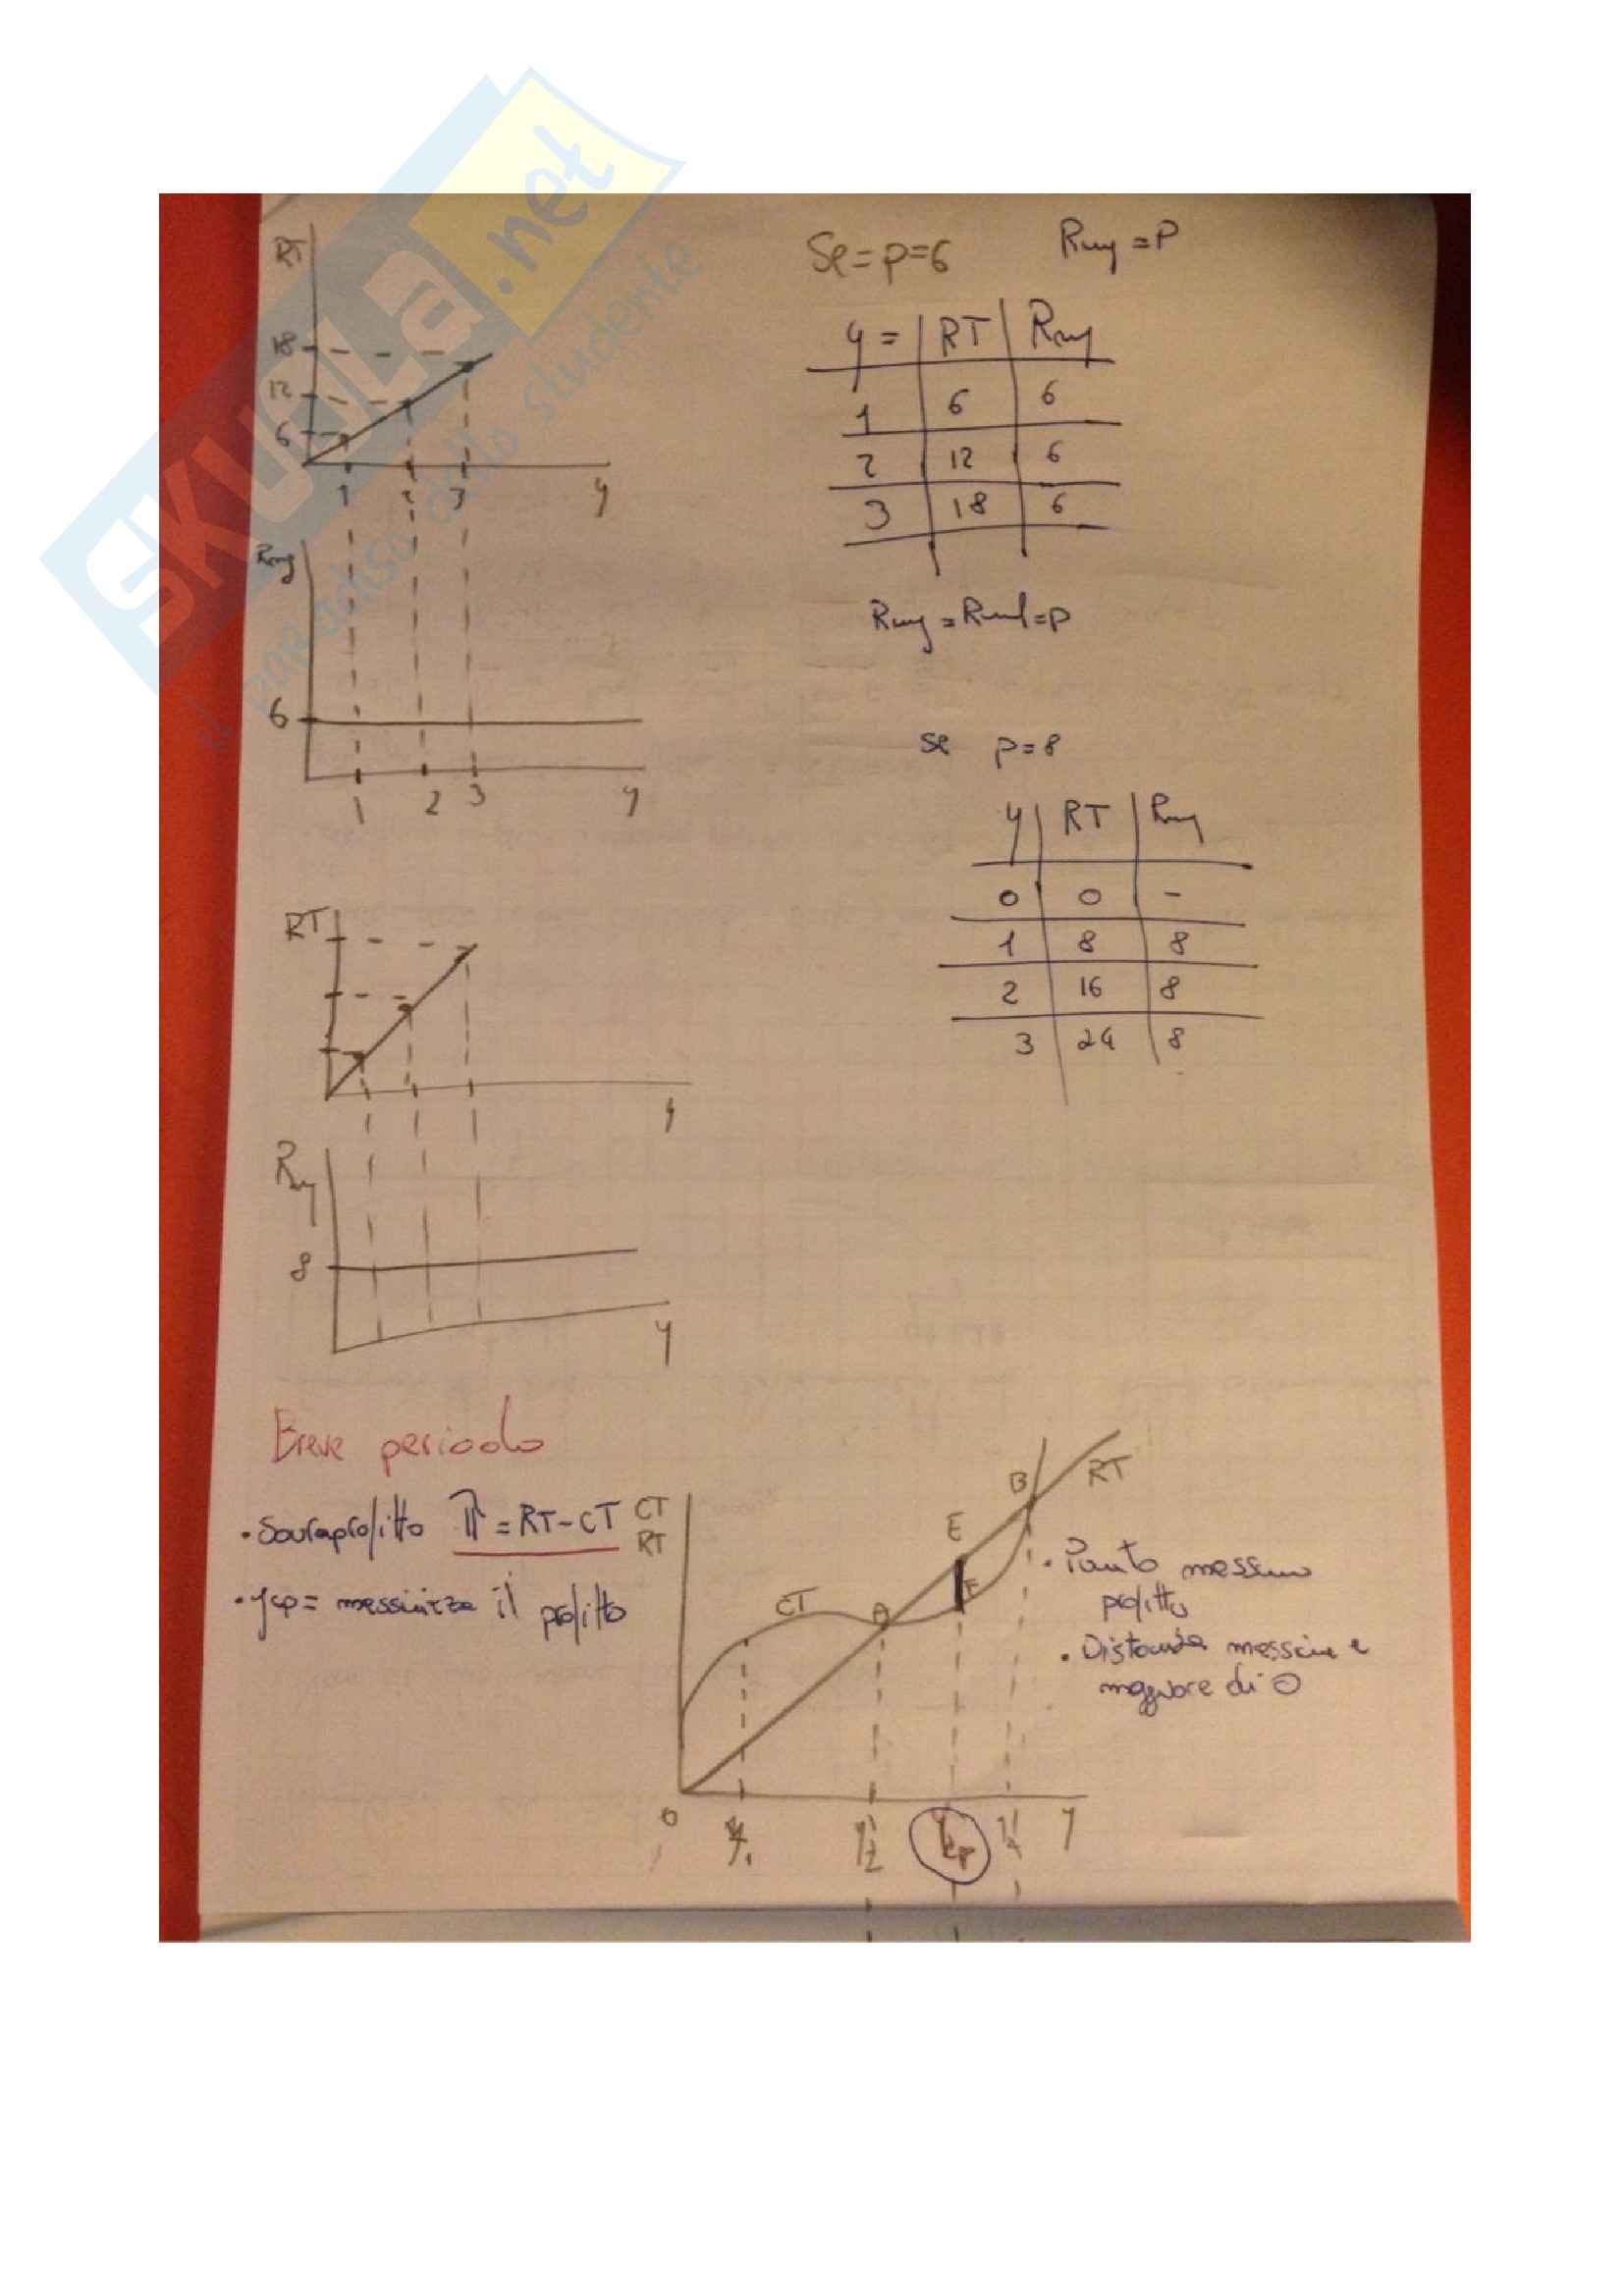 SKUOLa.net
il paradiso dello studente
RT
18
12
6
1 2 3 y
Rmg
6
1 2 3 y
Se = p=6 Rmg = P
y = RT Rmg
1 6 6
2 12 6
3 18 6
Rmg = Rmd = P
se p=8
y RT Rmg
0 0 -
1 8 8
2 16 8
3 24 8
RT
y
Rmg
8
y
Breve periodo
• Sovraprofitto π = RT-CT
• ycp = messimizza il profitto
CT
RT
CT A E F B RT
0 y1 y2 ycp y
• Punto messimo
profitto
• Distanza messima e
maggiore di 0